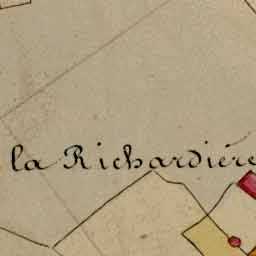 la Richardière